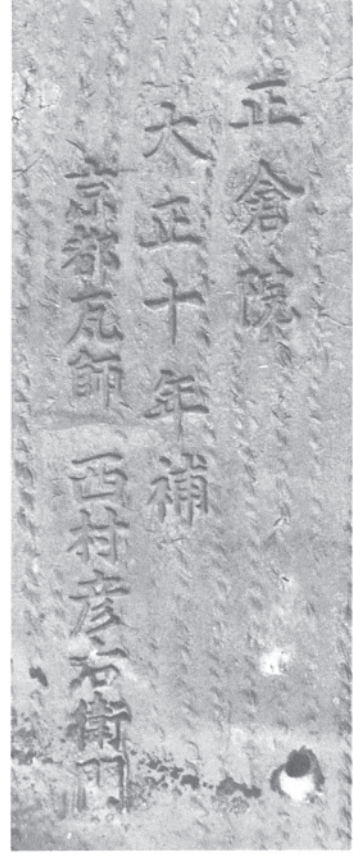 正倉院
大正十年補
京都瓦師　西村彦右衛門